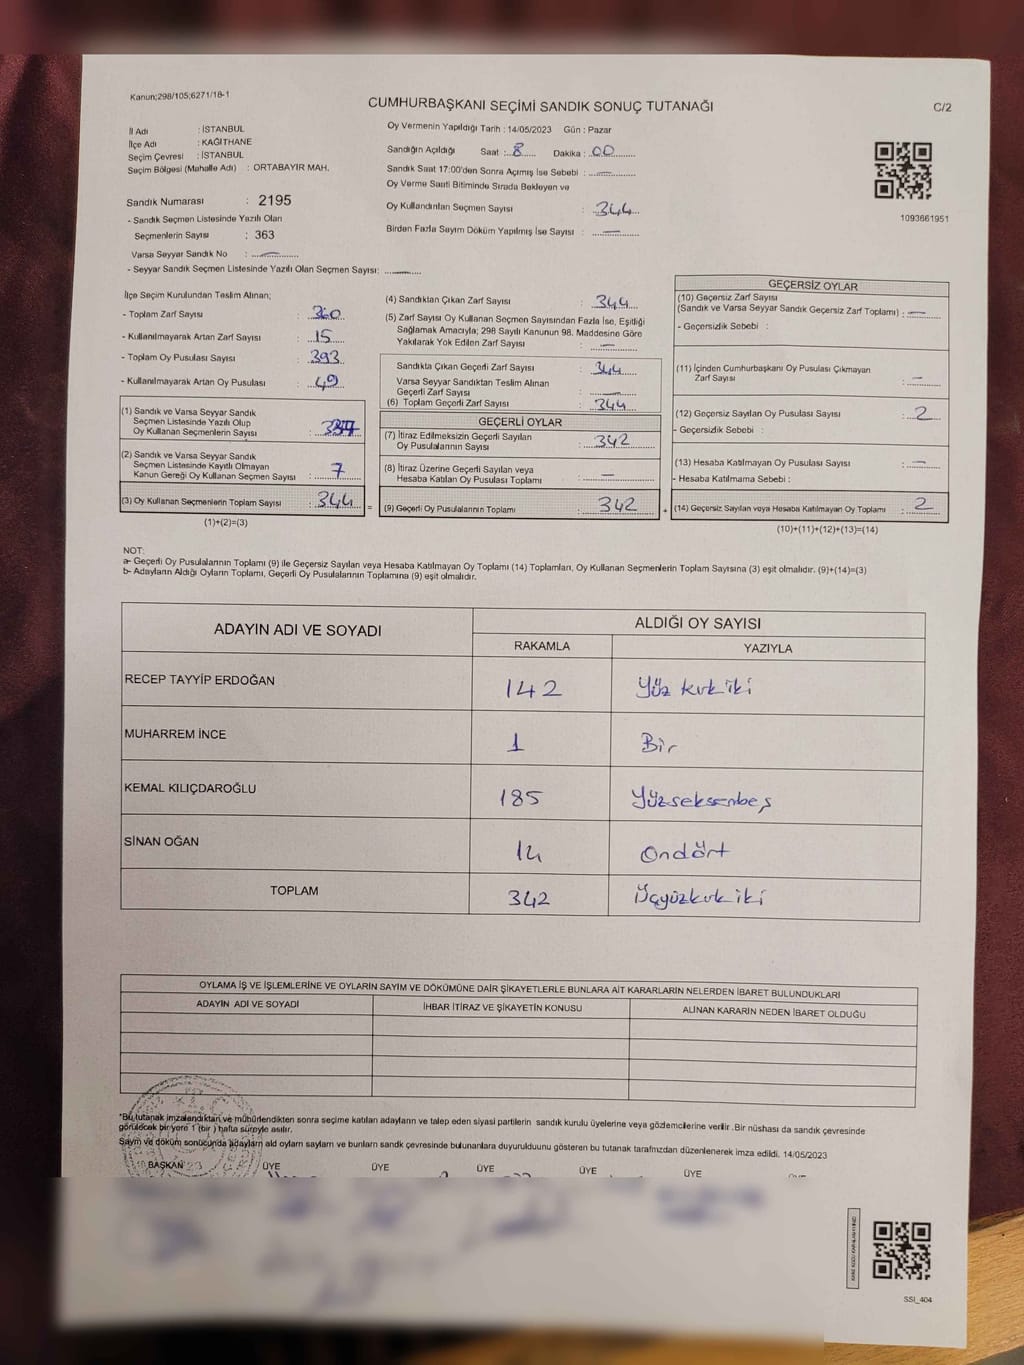 Kanun;298/105;6271/18-1
CUMHURBAŞKANI SEÇİMİ SANDIK SONUÇ TUTANAĞI
C/2
İl Adı : İSTANBUL
İlçe Adı : KAĞITHANE
Seçim Çevresi : İSTANBUL
Seçim Bölgesi (Mahalle Adı) : ORTABAYIR MAH.
Sandık Numarası : 2195
- Sandık Seçmen Listesinde Yazılı Olan
Seçmenlerin Sayısı : 363
Varsa Seyyar Sandık No : —
- Seyyar Sandık Seçmen Listesinde Yazılı Olan Seçmen Sayısı: —
Oy Vermenin Yapıldığı Tarih : 14/05/2023 Gün : Pazar
Sandığın Açıldığı Saat : 8 Dakika : 00
Sandık Saat 17:00'den Sonra Açımış İse Sebebi : —
Oy Verme Saati Bitiminde Sırada Bekleyen ve
Oy Kullandırılan Seçmen Sayısı : 344
Birden Fazla Sayım Döküm Yapılmış İse Sayısı : —
1093661951
İlçe Seçim Kurulundan Teslim Alınan;
- Toplam Zarf Sayısı : 360
- Kullanılmayarak Artan Zarf Sayısı : 15
- Toplam Oy Pusulası Sayısı : 393
- Kullanılmayarak Artan Oy Pusulası : 49
(1) Sandık ve Varsa Seyyar Sandık
Seçmen Listesinde Yazılı Olup
Oy Kullanan Seçmenlerin Sayısı : 337
(2) Sandık ve Varsa Seyyar Sandık
Seçmen Listesinde Kayıtlı Olmayan
Kanun Gereği Oy Kullanan Seçmen Sayısı : 7
(3) Oy Kullanan Seçmenlerin Toplam Sayısı : 344
(1)+(2)=(3)
=
(4) Sandıktan Çıkan Zarf Sayısı : 344
(5) Zarf Sayısı Oy Kullanan Seçmen Sayısından Fazla İse, Eşitliği
Sağlamak Amacıyla; 298 Sayılı Kanunun 98. Maddesine Göre
Yakılarak Yok Edilen Zarf Sayısı : —
Sandıkta Çıkan Geçerli Zarf Sayısı : 344
Varsa Seyyar Sandıktan Teslim Alınan
Geçerli Zarf Sayısı : —
(6) Toplam Geçerli Zarf Sayısı : 344
GEÇERLİ OYLAR
(7) İtiraz Edilmeksizin Geçerli Sayılan
Oy Pusulalarının Sayısı : 342
(8) İtiraz Üzerine Geçerli Sayılan veya
Hesaba Katılan Oy Pusulası Toplamı : —
(9) Geçerli Oy Pusulalarının Toplamı : 342
+
GEÇERSİZ OYLAR
(10) Geçersiz Zarf Sayısı
(Sandık ve Varsa Seyyar Sandık Geçersiz Zarf Toplamı) : —
- Geçersizlik Sebebi :
(11) İçinden Cumhurbaşkanı Oy Pusulası Çıkmayan
Zarf Sayısı : —
(12) Geçersiz Sayılan Oy Pusulası Sayısı : 2
- Geçersizlik Sebebi :
(13) Hesaba Katılmayan Oy Pusulası Sayısı : —
- Hesaba Katılmama Sebebi :
(14) Geçersiz Sayılan veya Hesaba Katılmayan Oy Toplamı : 2
(10)+(11)+(12)+(13)=(14)
NOT:
a- Geçerli Oy Pusulalarının Toplamı (9) ile Geçersiz Sayılan veya Hesaba Katılmayan Oy Toplamı (14) Toplamları, Oy Kullanan Seçmenlerin Toplam Sayısına (3) eşit olmalıdır. (9)+(14)=(3)
b- Adayların Aldığı Oyların Toplamı, Geçerli Oy Pusulalarının Toplamına (9) eşit olmalıdır.
ADAYIN ADI VE SOYADI
ALDIĞI OY SAYISI
RAKAMLA YAZIYLA
RECEP TAYYİP ERDOĞAN 142 Yüz kırk iki
MUHARREM İNCE 1 Bir
KEMAL KILIÇDAROĞLU 185 Yüzseksenbeş
SİNAN OĞAN 14 Ondört
TOPLAM 342 Üçyüzkırk iki
OYLAMA İŞ VE İŞLEMLERİNE VE OYLARIN SAYIM VE DÖKÜMÜNE DAİR ŞİKAYETLERLE BUNLARA AİT KARARLARIN NELERDEN İBARET BULUNDUKLARI
ADAYIN ADI VE SOYADI İHBAR İTİRAZ VE ŞİKAYETİN KONUSU ALINAN KARARIN NEDEN İBARET OLDUĞU
*Bu tutanak imzalandıktan ve mühürlendikten sonra seçime katılan adayların ve talep eden siyasi partilerin sandık kurulu üyelerine veya gözlemcilerine verilir .Bir nüshası da sandık çevresinde
görülecek bir yere 1 (bir ) hafta süreyle asılır.
Sayım ve döküm sonucunda adayların aldı oyların sayıların ve bunların sandık çevresinde bulunanlara duyurulduunu gösteren bu tutanak tarafmzdan düzenlenerek imza edildi. 14/05/2023
BAŞKAN ÜYE ÜYE ÜYE ÜYE ÜYE
SSI_404